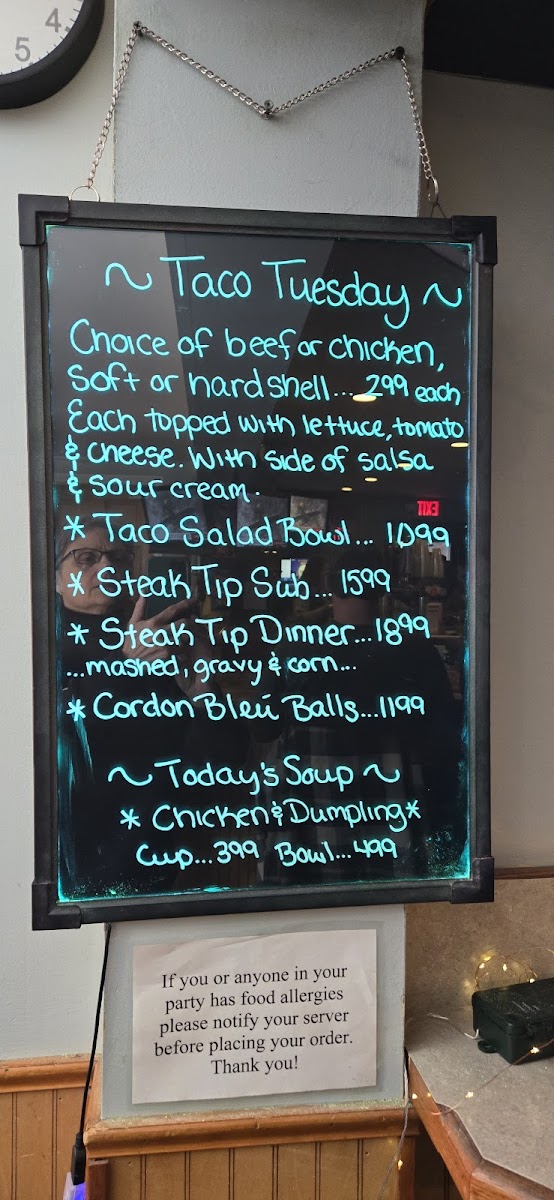 4
5
~ Taco Tuesday ~
Choice of beef or chicken,
Soft or hard shell... 299 each
Each topped with lettuce, tomato
& cheese. With side of salsa
& sour cream.
EXIT
* Taco Salad Bowl... 1099
* Steak Tip Sub... 1599
* Steak Tip Dinner...1899
...mashed, gravy & corn...
* Cordon Bleú Balls...1199
~ Today's Soup ~
* Chicken & Dumpling *
Cup...399 Bowl...499
If you or anyone in your
party has food allergies
please notify your server
before placing your order.
Thank you!